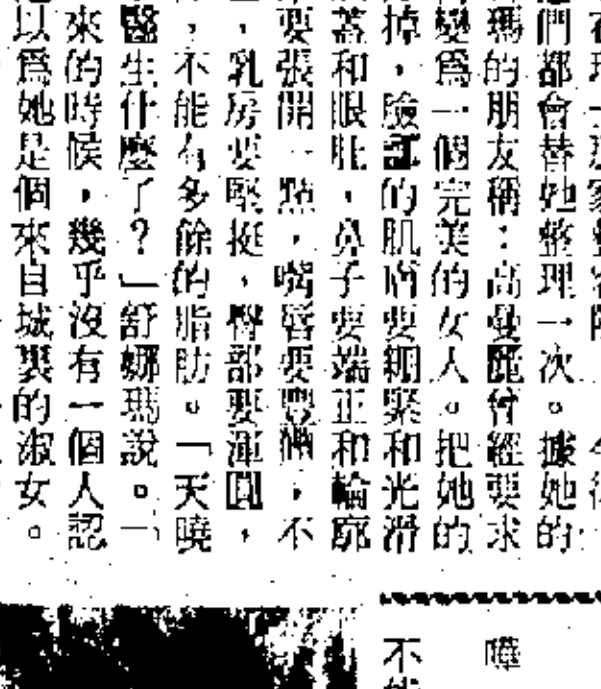 們都會替她整理一次。據她的
瑪的朋友稱：高曼麗曾經要求
變爲一個完美的女人。把她的
掉，臉部的肌膚要細緊和光滑
蓋和眼肚，鼻子要端正和輪廓
要張開一點，嘴唇要豐滿，不
，乳房要堅挺，臀部要渾圓，
，不能有多餘的脂肪。「天曉
醫生什麼了？」舒娜瑪說。「
來的時候，幾乎沒有一個人認
以爲她是個來自城裏的淑女。
嘩
不